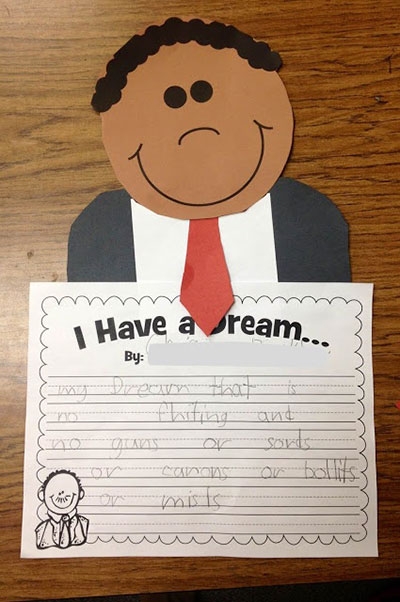 I Have a Dream...
By:
my Dream that is
no fhiting and
no guns or sords
or canons or bollits
or misls